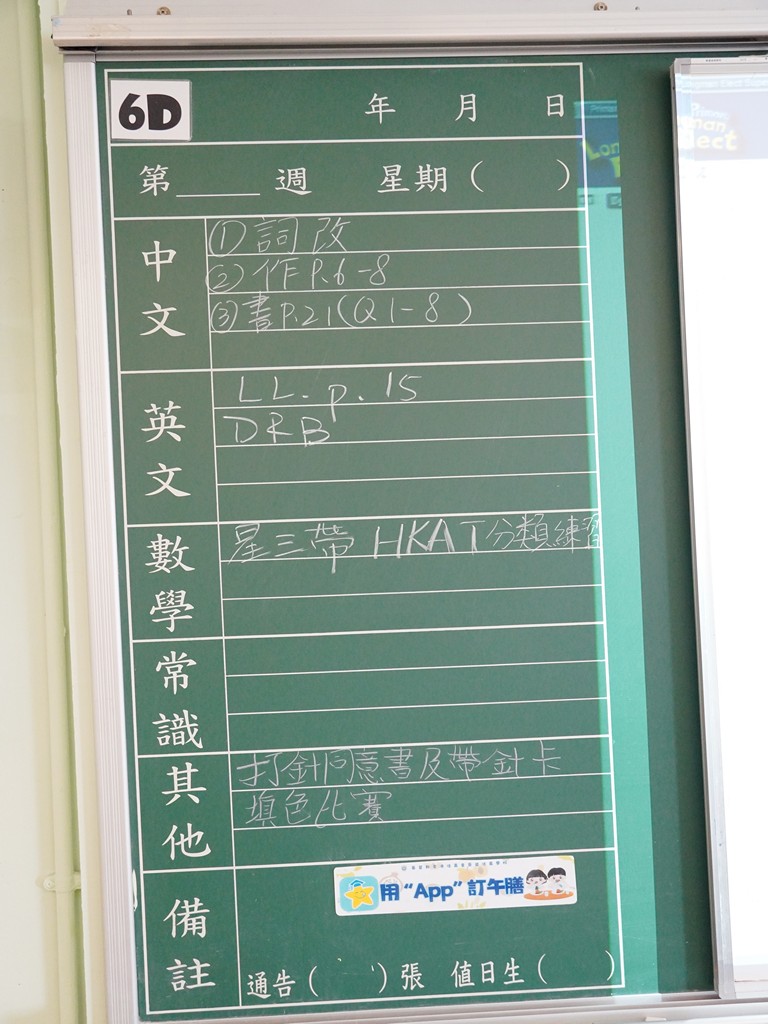 6D
年 月 日
第____週 星期( )
中文
①詞改
②作P.6-8
③書P.21(Q1-8)
英文
LL. p. 15
DRB
數學
星三帶HKAT分類練習
常識
其他
打針同意書及帶針卡
填色比賽
備註
用“App”訂午膳
通告( )張 值日生( )